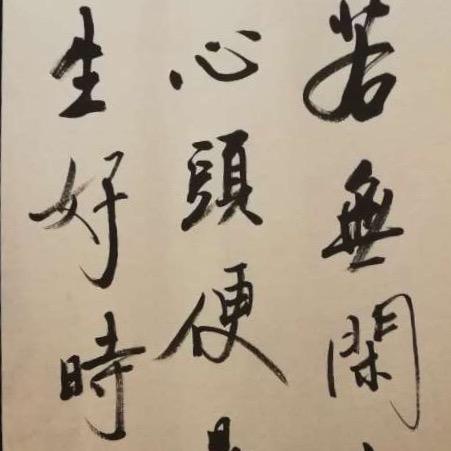 若無閑
心頭便
生好時